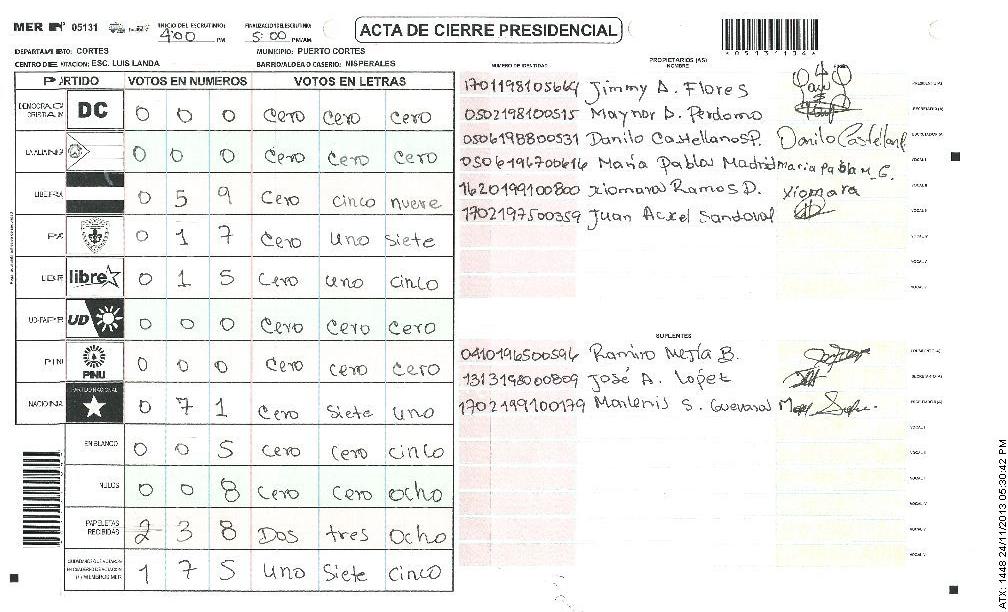 MER 05131 INICIO DEL ESCRUTINIO: 4:00 PM FINALIZACION DEL ESCRUTINIO: 5:00 PM/AM ACTA DE CIERRE PRESIDENCIAL
DEPARTAMENTO: CORTES MUNICIPIO: PUERTO CORTES
CENTRO DE VOTACION: ESC. LUIS LANDA BARRIO/ALDEA O CASERIO: NISPERALES
PARTIDO VOTOS EN NUMEROS VOTOS EN LETRAS
DEMOCRACIA CRISTIANA DC 0 0 0 Cero Cero Cero
LA ALIANZA 0 0 0 Cero Cero Cero
LIBERAL 0 5 9 Cero cinco nueve
0 1 7 Cero Uno Siete
LIBRE libre 0 1 5 Cero uno cinco
UD 0 0 0 Cero Cero Cero
PINU PINU 0 0 0 Cero cero cero
NACIONAL PARTIDO NACIONAL 0 7 1 Cero Siete uno
EN BLANCO 0 0 5 cero Cero cinco
NULOS 0 0 8 Cero Cero ocho
PAPELETAS RECIBIDAS 2 3 8 Dos tres ocho
1 7 5 Uno Siete cinco
NUMERO DE IDENTIDAD PROPIETARIOS (AS) NOMBRE
1701198105664 Jimmy A. Flores PRESIDENTE (A)
0502198100515 Maynor D. Perdomo SECRETARIO (A)
0506198800531 Danilo Castellanos P. Danilo Castellan ESCRUTADOR (A)
0506196700616 María Pablas Madrid maria pabla M. G. VOCAL I
1620199100800 Xiomara Ramos D. Xiomara VOCAL II
1702197500359 Juan Ackel Sandoval
VOCAL IV
VOCAL V
SUPLENTES
0410196500594 Ramiro Mejía B. PRESIDENTE (A)
1313198000809 José A. Lopez SECRETARIO (A)
1702199100179 Marlenis S. Guevara
VOCAL I
VOCAL II
VOCAL IV
VOCAL V
ATX: 1448 24/11/2013 05:30:42 PM